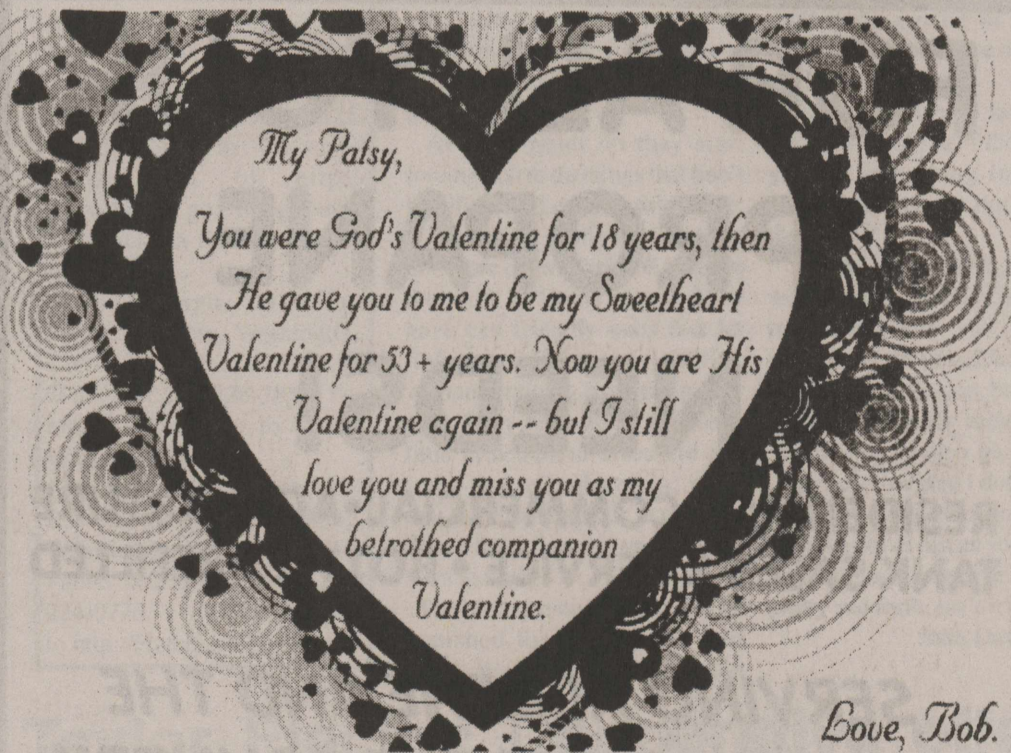 My Patsy,
You were God's Valentine for 18 years, then
He gave you to me to be my Sweetheart
Valentine for 53+ years. Now you are His
Valentine again -- but I still
love you and miss you as my
betrothed companion
Valentine.
Love, Bob.